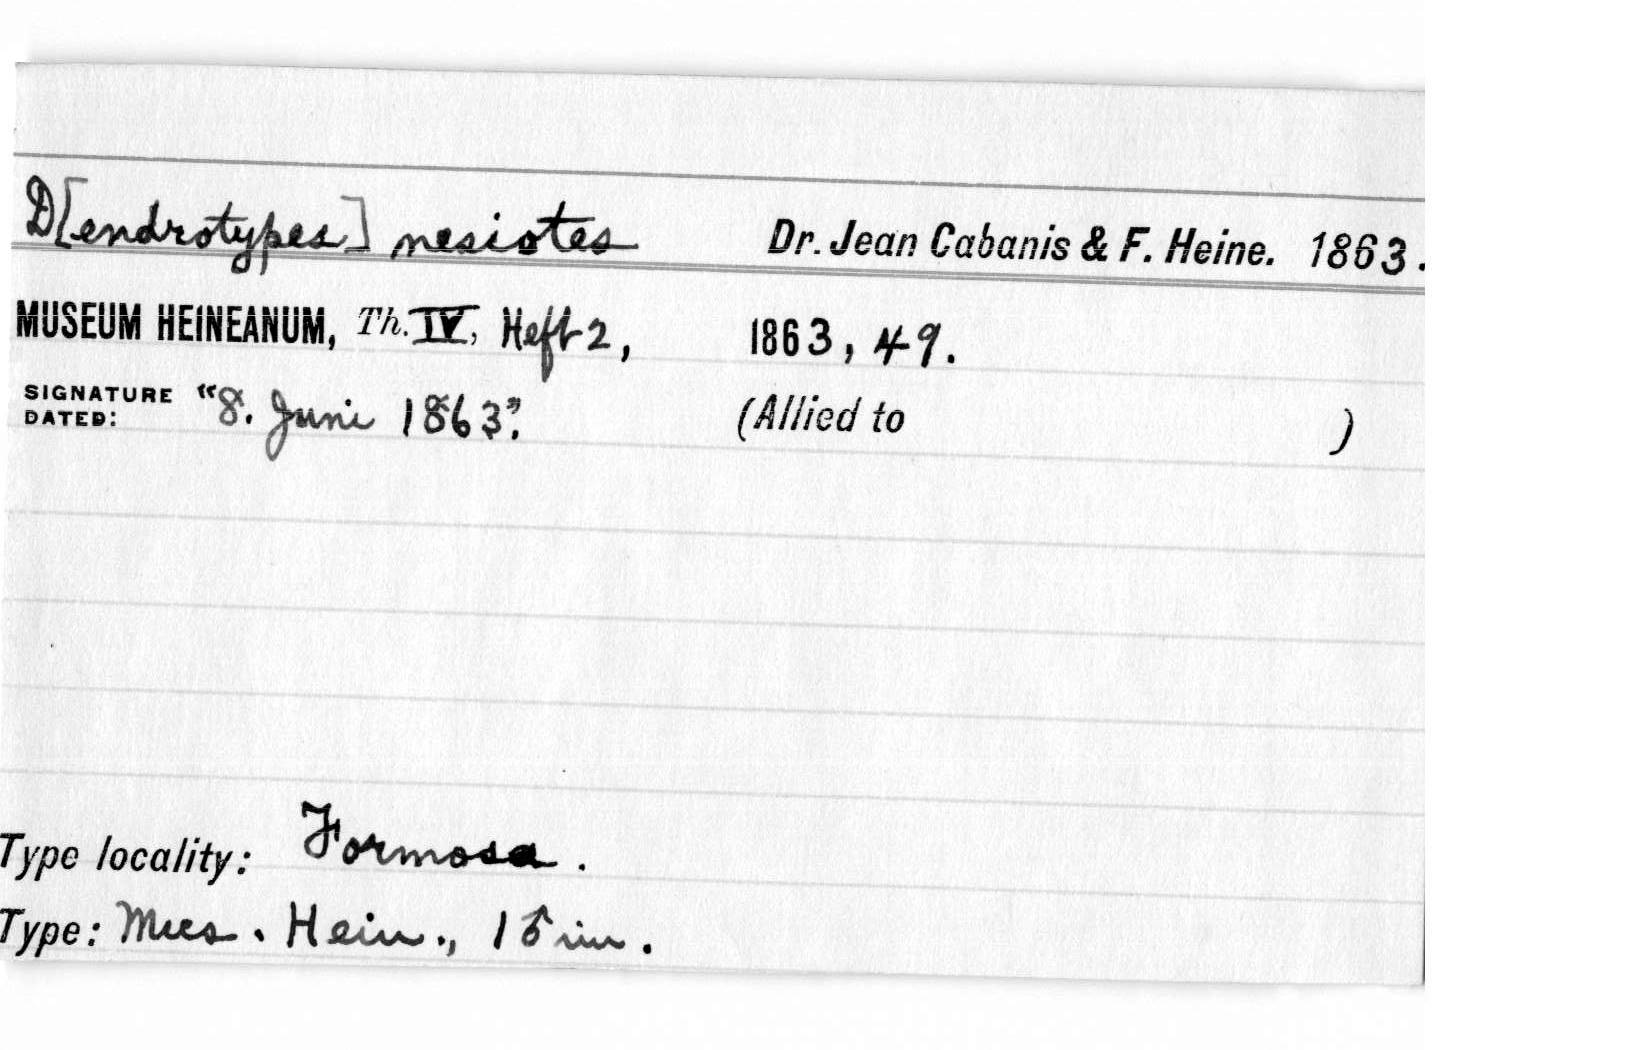 D[endrotypes] nesiotes Dr. Jean Cabanis & F. Heine. 1863.
MUSEUM HEINEANUM, Th. IV, Heft 2, 1863, 49.
SIGNATURE DATED: "8. Juni 1863". (Allied to )
Type locality: Formosa.
Type: Mus. Hein., 1 ♂ im.